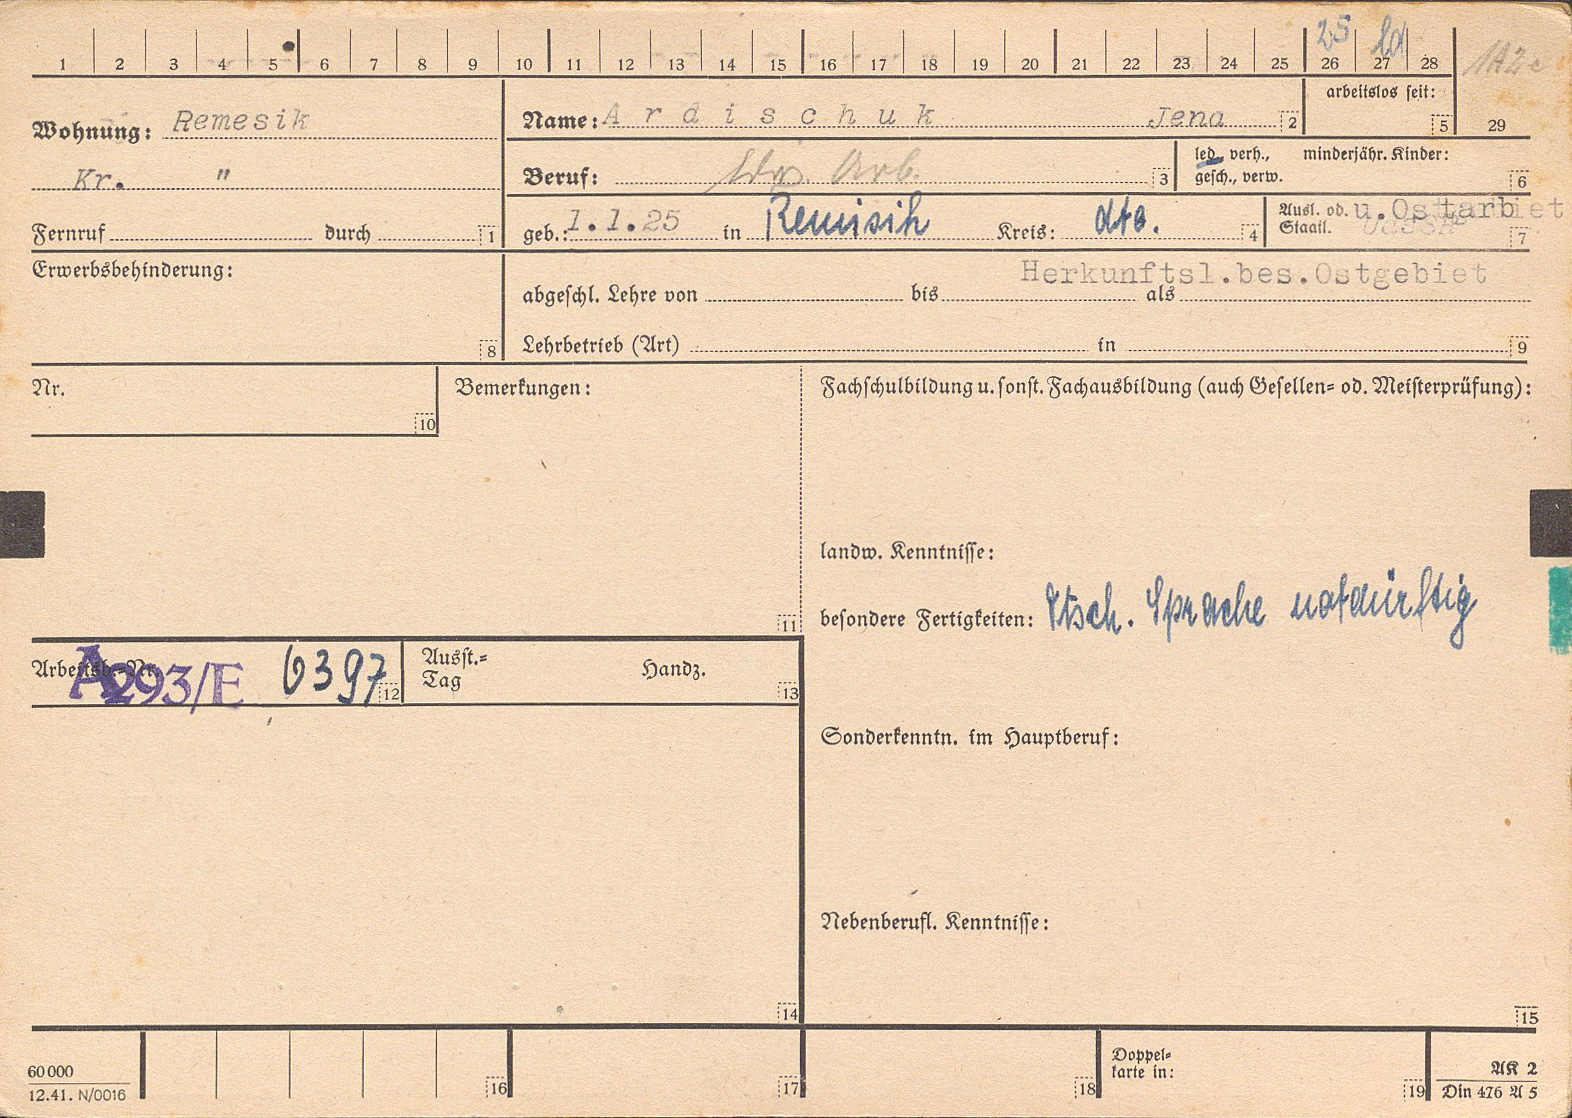 1 2 3 4 5 6 7 8 9 10 11 12 13 14 15 16 17 18 19 20 21 22 23 24 25 26 27 28
25 ld
arbeitslos seit:
5 29
Wohnung: Remesik
Kr. "
Fernruf durch 1
Name: Ardischuk Jena 2
Beruf: Arb. 3
led., verh., gesch., verw.
minderjähr. Kinder: 6
geb.: 1.1.25 in Remisik Kreis: dto. 4
Ausl. od. Staatl. u. Osttarbiet 7
Erwerbsbehinderung: 8
Herkunftsl.bes.Ostgebiet
abgeschl. Lehre von bis als
Lehrbetrieb (Art) in 9
Nr. 10
Bemerkungen: 11
Fachschulbildung u. sonst. Fachausbildung (auch Gesellen= od. Meisterprüfung):
landw. Kenntnisse:
besondere Fertigkeiten: dtsch. Sprache notdürftig
Arbeitsb.-Nr. A293/E 6397 12
Ausst.= Tag Handz. 13
Sonderkenntn. im Hauptberuf:
Nebenberufl. Kenntnisse:
14 15
60 000
12.41. N/0016
16 17 18
Doppel=
karte in: 19
AK 2
Din 476 A 5